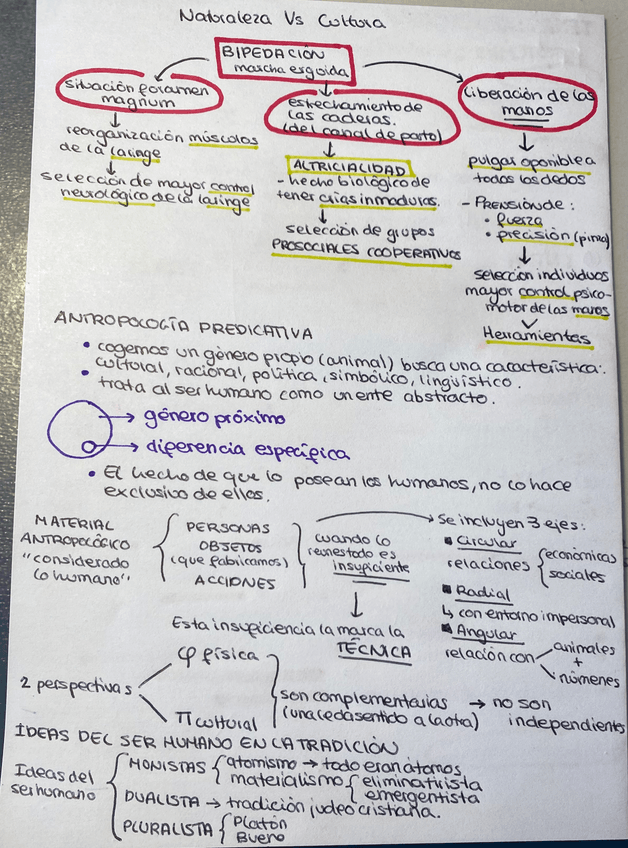 Naturaleza Vs Cultura
BIPEDACIÓN
marcha erguida
situación foramen
magnum
reorganización músculos
de la laringe
selección de mayor control
neurológico de la laringe
estrechamiento de
las caderas.
(del canal de parto)
ALTRICIALIDAD
- hecho biológico de
tener crías inmaduras.
selección de grupos
PROSOCIALES COOPERATIVOS
liberación de las
manos
pulgar oponible a
todos los dedos
- Prensión de:
• fuerza
• precisión (pinza)
selección individuos
mayor control psico-
motor de las manos
Herramientas
ANTROPOLOGÍA PREDICATIVA
• cogemos un género propio (animal) busca una característica:
cultural, racional, política, simbólico, lingüístico.
• trata al ser humano como un ente abstracto.
→ género próximo
→ diferencia específica
• El hecho de que lo posean los humanos, no lo hace
exclusivo de ellos.
MATERIAL
ANTROPOLÓGICO
"considerado
lo humano"
PERSONAS
OBJETOS
(que fabricamos)
ACCIONES
cuando lo
reunestado es
insuficiente
Esta insuficiencia la marca la
TÉCNICA
se incluyen 3 ejes:
▪ Circular
relaciones { económicas
sociales
▪ Radial
↳ con entorno impersonal
▪ Angular
relación con animales
+
númenes
2 perspectivas
φ física
π cultural
son complementarias → no son
(una le da sentido a la otra) independientes
IDEAS DEL SER HUMANO EN LA TRADICIÓN
Ideas del
ser humano
MONISTAS { atomismo → todo eran átomos
materialismo { eliminativista
emergentista
DUALISTA → tradición judeo cristiana.
PLURALISTA { Platón
Bueno